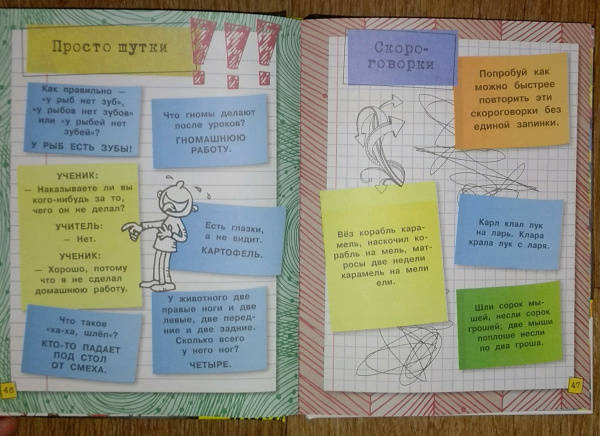 Просто шутки
Как правильно —
«у рыб нет зуб»,
«у рыбов нет зубов»
или «у рыбей нет
зубей»?
У РЫБ ЕСТЬ ЗУБЫ!
Что гномы делают
после уроков?
ГНОМАШНЮЮ
РАБОТУ.
УЧЕНИК:
— Наказываете ли вы
кого-нибудь за то,
чего он не делал?
УЧИТЕЛЬ:
— Нет.
УЧЕНИК:
— Хорошо, потому
что я не сделал
домашнюю работу.
Есть глазки,
а не видит.
КАРТОФЕЛЬ.
Что такое
«ха-ха, шлёп»?
КТО-ТО ПАДАЕТ
ПОД СТОЛ
ОТ СМЕХА.
У животного две
правые ноги и две
левые, две перед-
ние и две задние.
Сколько всего
у него ног?
ЧЕТЫРЕ.
46
Скоро-
говорки
Попробуй как
можно быстрее
повторить эти
скороговорки без
единой запинки.
Вёз корабль кара-
мель, наскочил ко-
рабль на мель, мат-
росы две недели
карамель на мели
ели.
Карл клал лук
на ларь. Клара
крала лук с ларя.
Шли сорок мы-
шей, несли сорок
грошей; две мыши
поплоше несли
по два гроша.
47